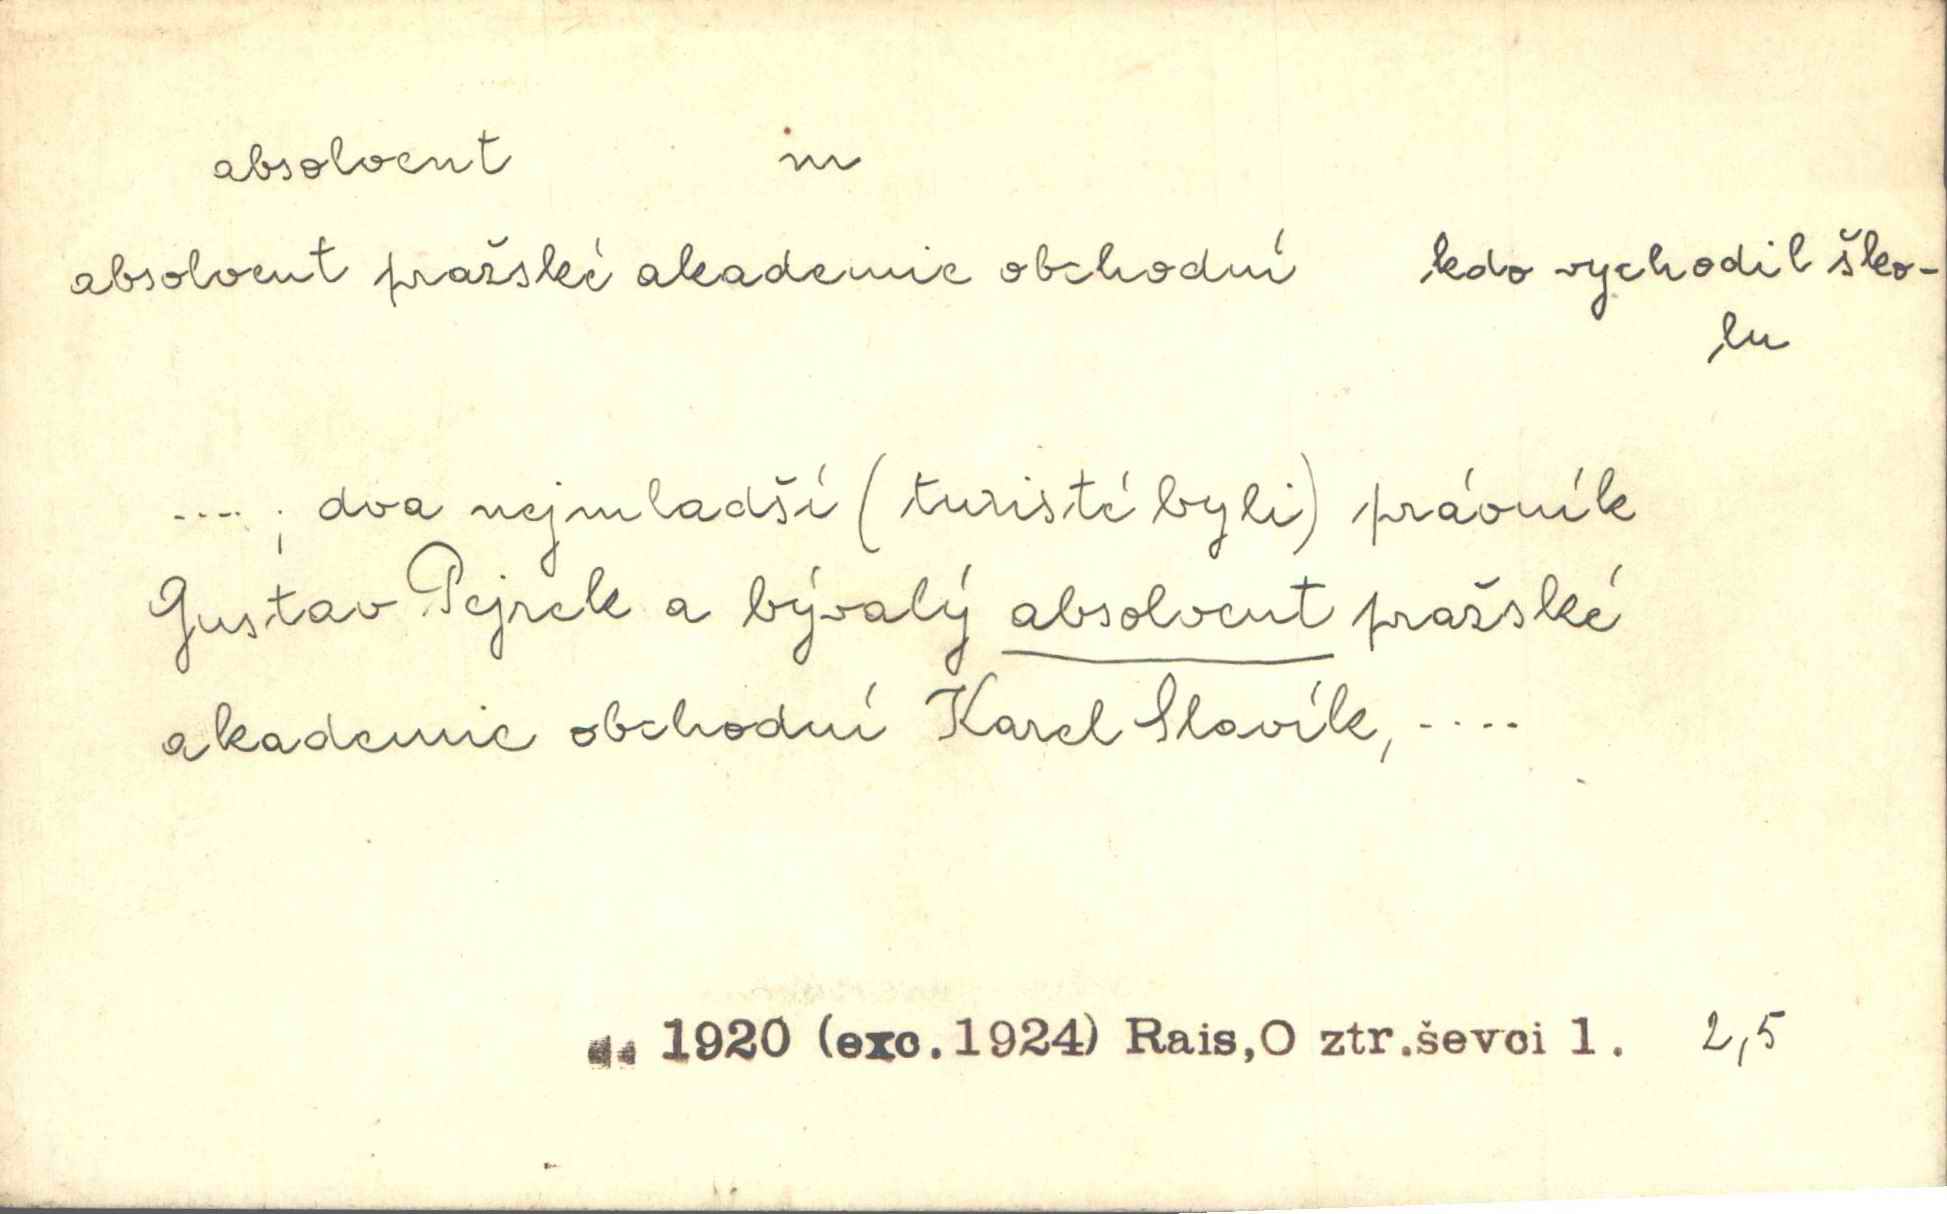 absolvent m
absolvent pražské akademie obchodní kdo vychodil ško-
lu
....; dva nejmladší (turisté byli) právník
Gustav Pejrek a bývalý absolvent pražské
akademie obchodní Karel Slavík, ....
1920 (exc.1924) Rais,O ztr.ševci 1. 2,5